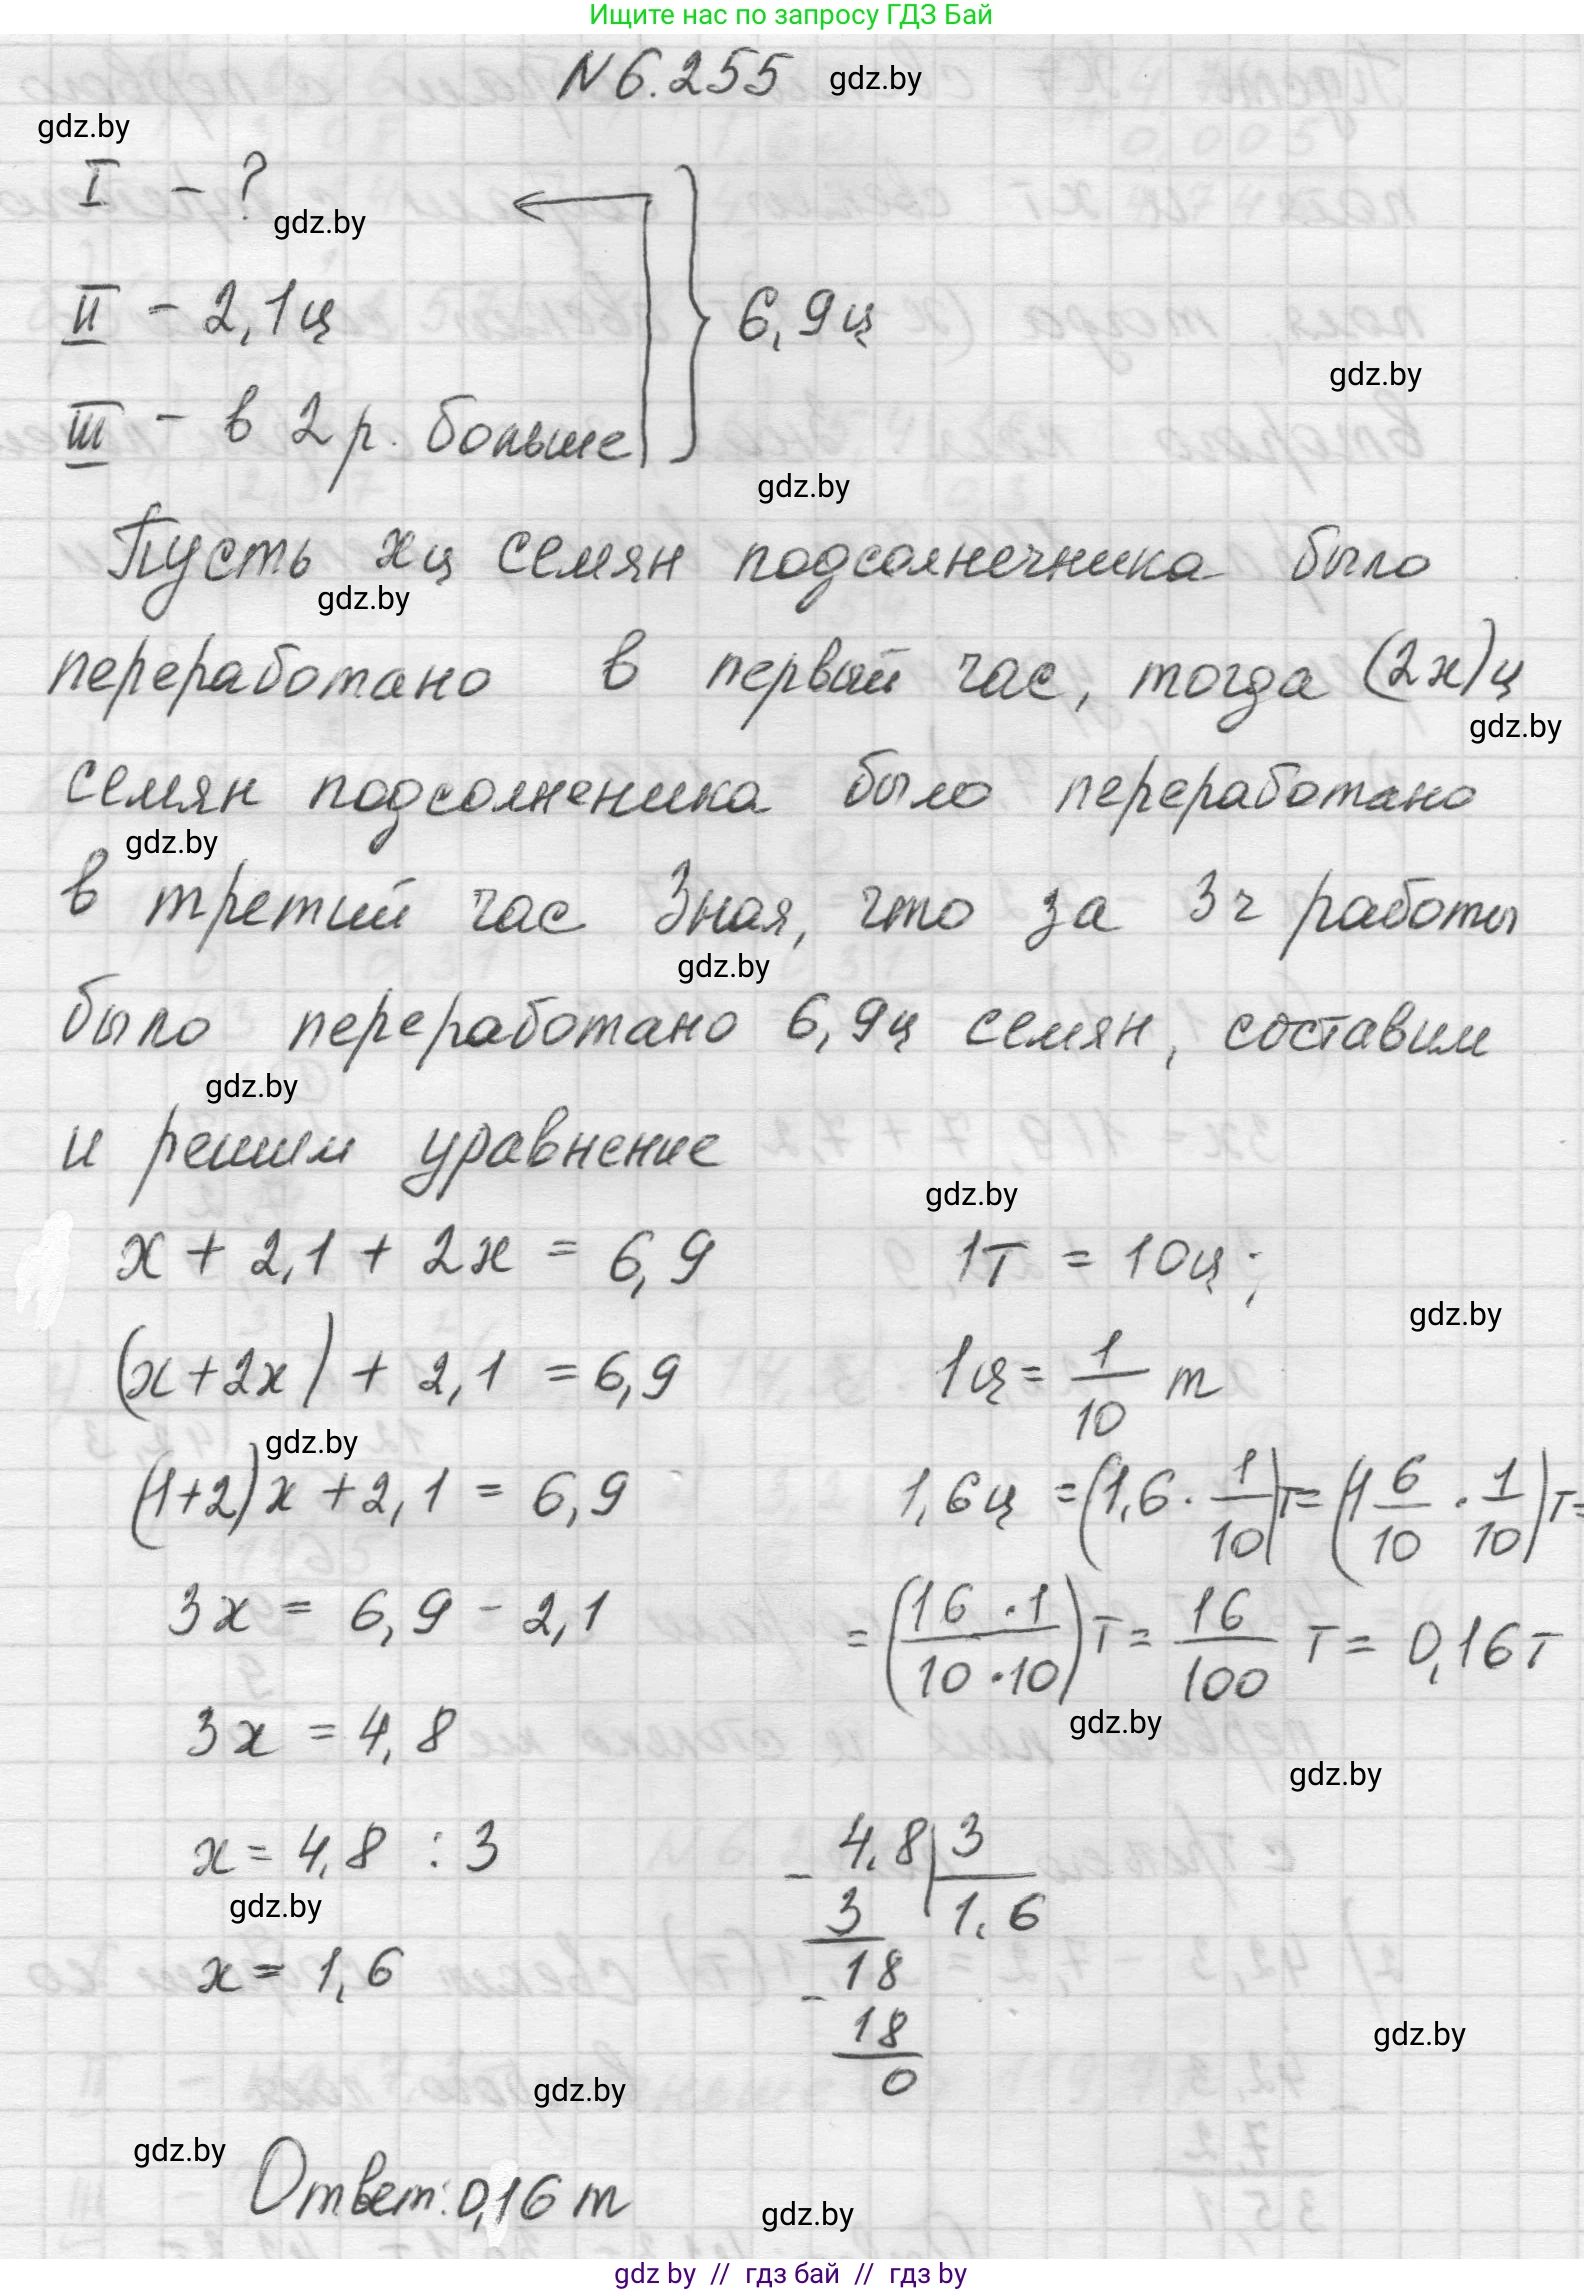 Ищите нас по запросу ГДЗ Бай
N 6.255 gdz.by
gdz.by
I - ?
gdz.by
II - 2,1ц
} 6,9ц
gdz.by
III - в 2 р. больше
gdz.by
Пусть хц семян подсолнечника было
gdz.by
переработано в первый час, тогда (2х)ц
gdz.by
семян подсолненика было переработано
gdz.by
в третий час Зная, что за 3ч работы
gdz.by
было переработано 6,9ц семян, составим
gdz.by
и решим уравнение
gdz.by
х + 2,1 + 2х = 6,9
1т = 10ц;
gdz.by
(х+2х) + 2,1 = 6,9
1ц = 1/10 т
gdz.by
(1+2)х + 2,1 = 6,9
1,6ц = (1,6 · 1/10)т = (1 6/10 · 1/10)т =
3х = 6,9 - 2,1
= (16 · 1 / 10 · 10)т = 16/100 т = 0,16т
gdz.by
3х = 4,8
gdz.by
х = 4,8 : 3
- 4,8 | 3
gdz.by
3 1,6
х = 1,6
- 18
18
gdz.by
0
gdz.by
gdz.by
Ответ: 0,16 т
gdz.by
gdz by // гдз бай // gdz by